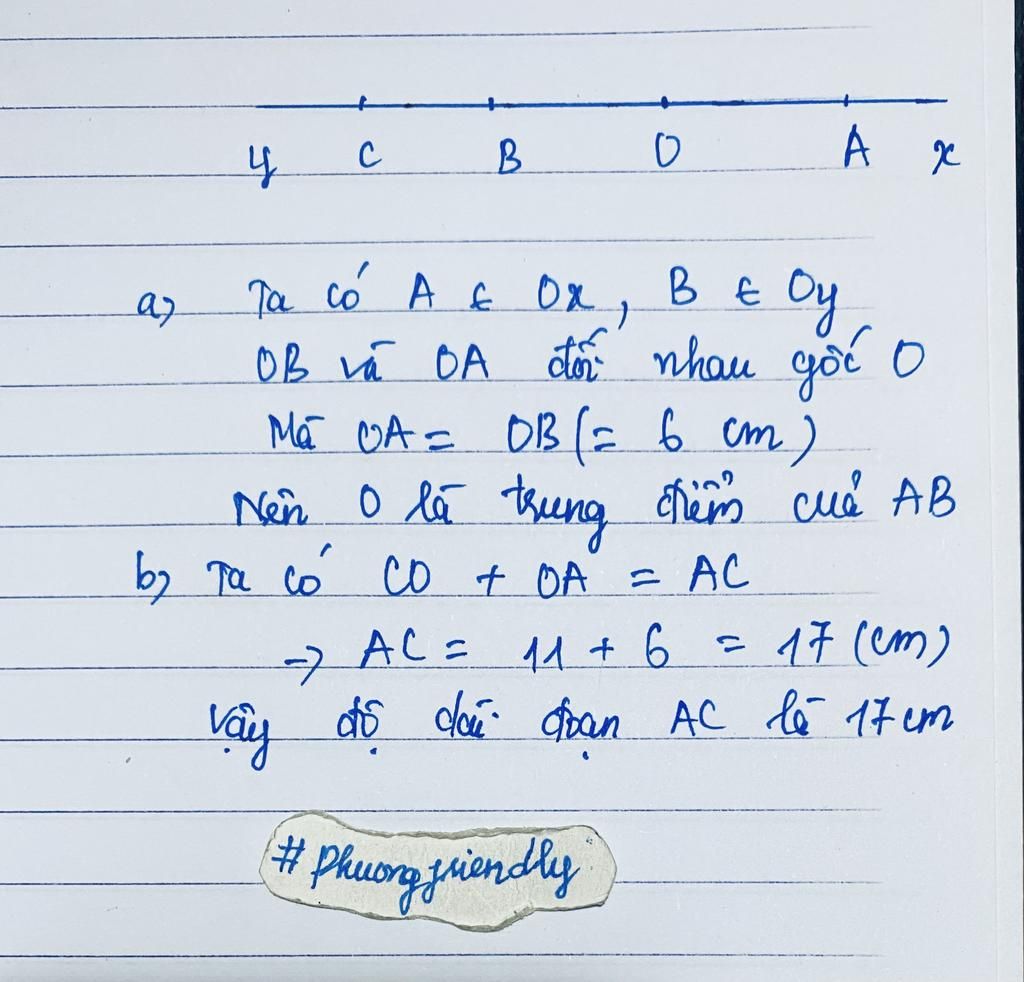 y C B O A x
a) Ta có A ∈ Ox, B ∈ Oy
OB và OA đối nhau gốc O
Mà OA = OB (= 6 cm)
Nên O là trung điểm của AB
b) Ta có CO + OA = AC
→ AC = 11 + 6 = 17 (cm)
Vậy độ dài đoạn AC là 17 cm
#Phuongfriendly